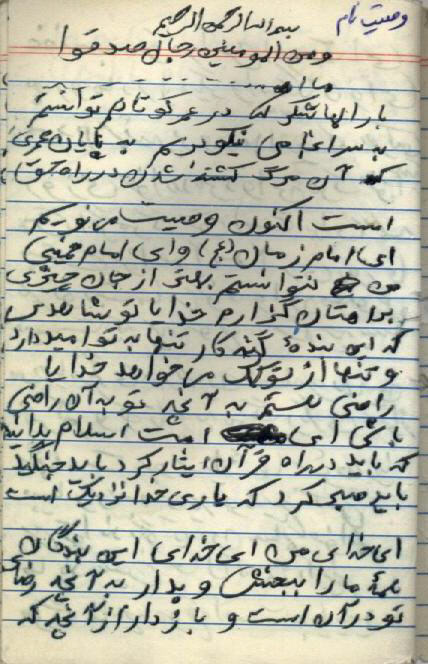 وصیت نام
بسم الله الرحمن الرحیم
ومن المومنین رجال صدقوا
ما
بار الها شکر که در عمر کوتاهم توانستم
به سرانجامی نیکو برسم به پایان عمری
که آن مرگ کشته شدن در راه حق
است اکنون وصیت می نویسم
ای امام زمان (عج) و ای امام خمینی
من نتوانستم بهتر از جان چیزی
براهتان گذارم خدایا تو شاهدی
که این بنده گنه کار تنها به تو امید دارد
و تنها از تو کمک می خواهد خدایا
راضی هستم به آنچه تو به آن راضی
باشی ای امت اسلام بدانید
که باید در راه قرآن ایثار کرد باید جنگید
باید صبر کرد که یاری خدا نزدیک است
ای خدای من ای خدای این بندگان
همۀ ما را ببخش و بدار به آنچه رضای
تو در آن است و باز دار از آنچه که